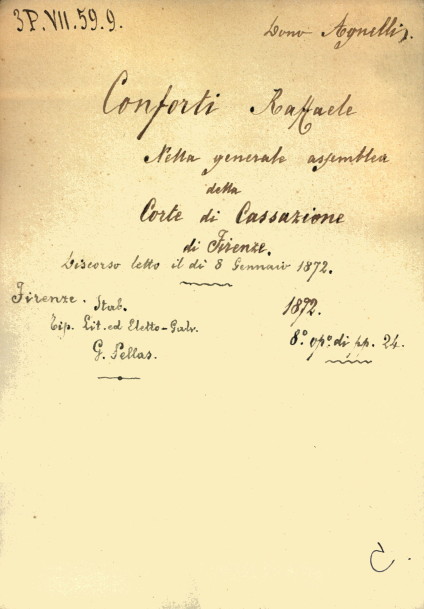 3P.VII.59.9.
Dono Agnelli.
Conforti Raffaele
Nella generale assemblea
della
Corte di Cassazione
di Firenze.
Discorso letto il dì 8 Gennaio 1872.
Firenze. Stab. 1872.
Tip. Lit. ed Eletto-Galv.
8.° op.° di pp. 24.
G. Pellas.
C